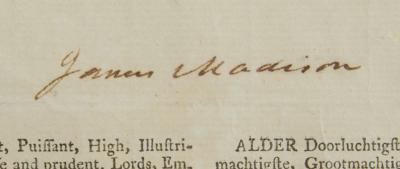 James Madison
t, Puiſſant, High, Illuſtri- ALDER Doorluchtigſt
ſe and prudent, Lords, Em. machtigſte, Grootmachtig